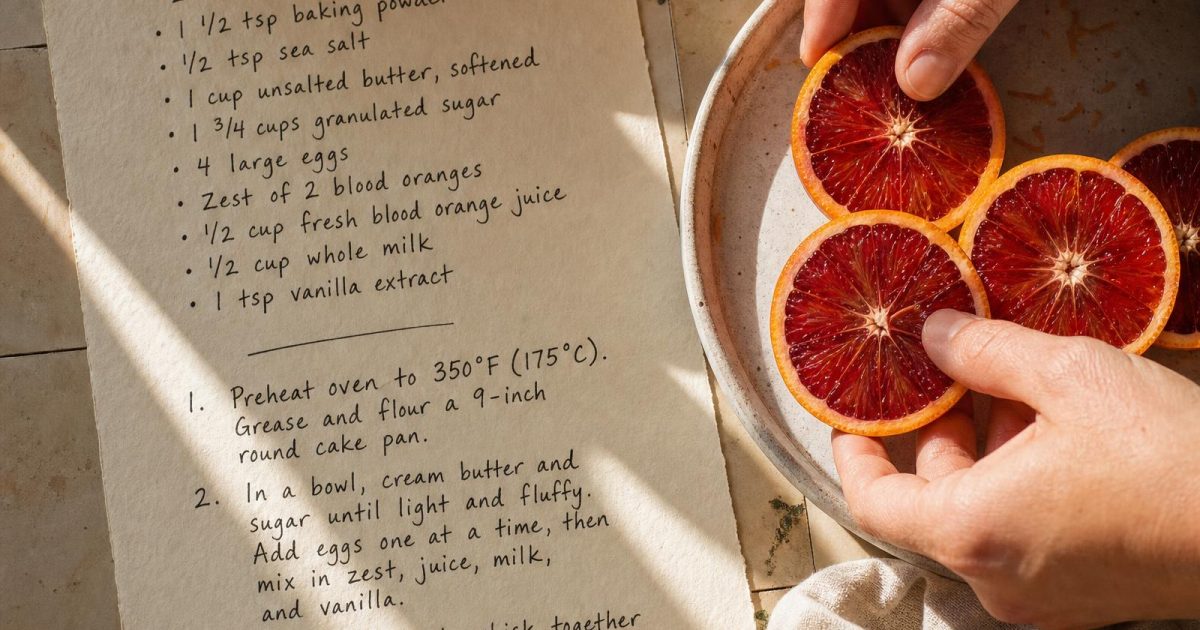 • 1 ½ tsp baking powder
• ½ tsp sea salt
• 1 cup unsalted butter, softened
• 1 ¾ cups granulated sugar
• 4 large eggs
• Zest of 2 blood oranges
• ½ cup fresh blood orange juice
• ½ cup whole milk
• 1 tsp vanilla extract
1. Preheat oven to 350°F (175°C).
Grease and flour a 9-inch
round cake pan.
2. In a bowl, cream butter and
sugar until light and fluffy.
Add eggs one at a time, then
mix in zest, juice, milk,
and vanilla.
together